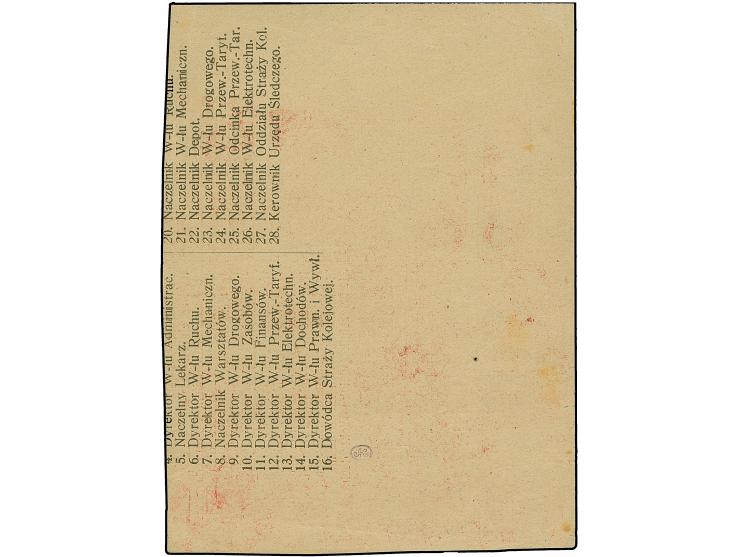 4. Dyrektor W-łu Administrac.
5. Naczelny Lekarz.
6. Dyrektor W-łu Ruchu.
7. Dyrektor W-łu Mechaniczn.
8. Naczelnik Warsztatów.
9. Dyrektor W-łu Drogowego.
10. Dyrektor W-łu Zasobów.
11. Dyrektor W-łu Finansów.
12. Dyrektor W-łu Przew.-Taryf.
13. Dyrektor W-łu Elektrotechn.
14. Dyrektor W-łu Dochodów.
15. Dyrektor W-łu Prawn. i Wywł.
16. Dowódca Straży Kolejowej.
20. Naczelnik W-łu Ruchu.
21. Naczelnik W-łu Mechaniczn.
22. Naczelnik Depot.
23. Naczelnik W-łu Drogowego.
24. Naczelnik W-łu Przew.-Taryf.
25. Naczelnik Odcinka Przew.-Tar.
26. Naczelnik W-łu Elektrotechn.
27. Naczelnik Oddziału Straży Kol.
28. Kerownik Urzędu Śledczego.